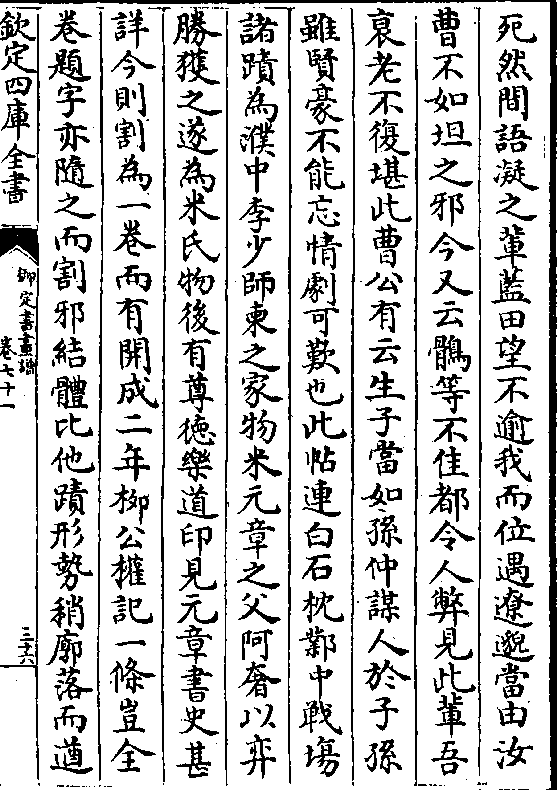 死然間語凝之輩藍田望不逾我而位遇遼邈當由汝
曹不如坦之邪今又云鶻等不佳都令人弊見此輩吾
衰老不復堪此曹公有云生子當如孫仲謀人於子孫
雖賢豪不能忘情劇可歎也此帖連白石枕鄴中戰塲
諸蹟為濮中李少師柬之家物米元章之父阿奢以弈
勝獲之遂為米氏物後有尊徳樂道印見元章書史甚
詳今則割為一卷而有開成二年栁公權記一條豈全
卷題字亦隨之而割邪結體比他蹟形勢稍廓落而遒
欽定四庫全書
御定書畫譜
卷七十一
三十六